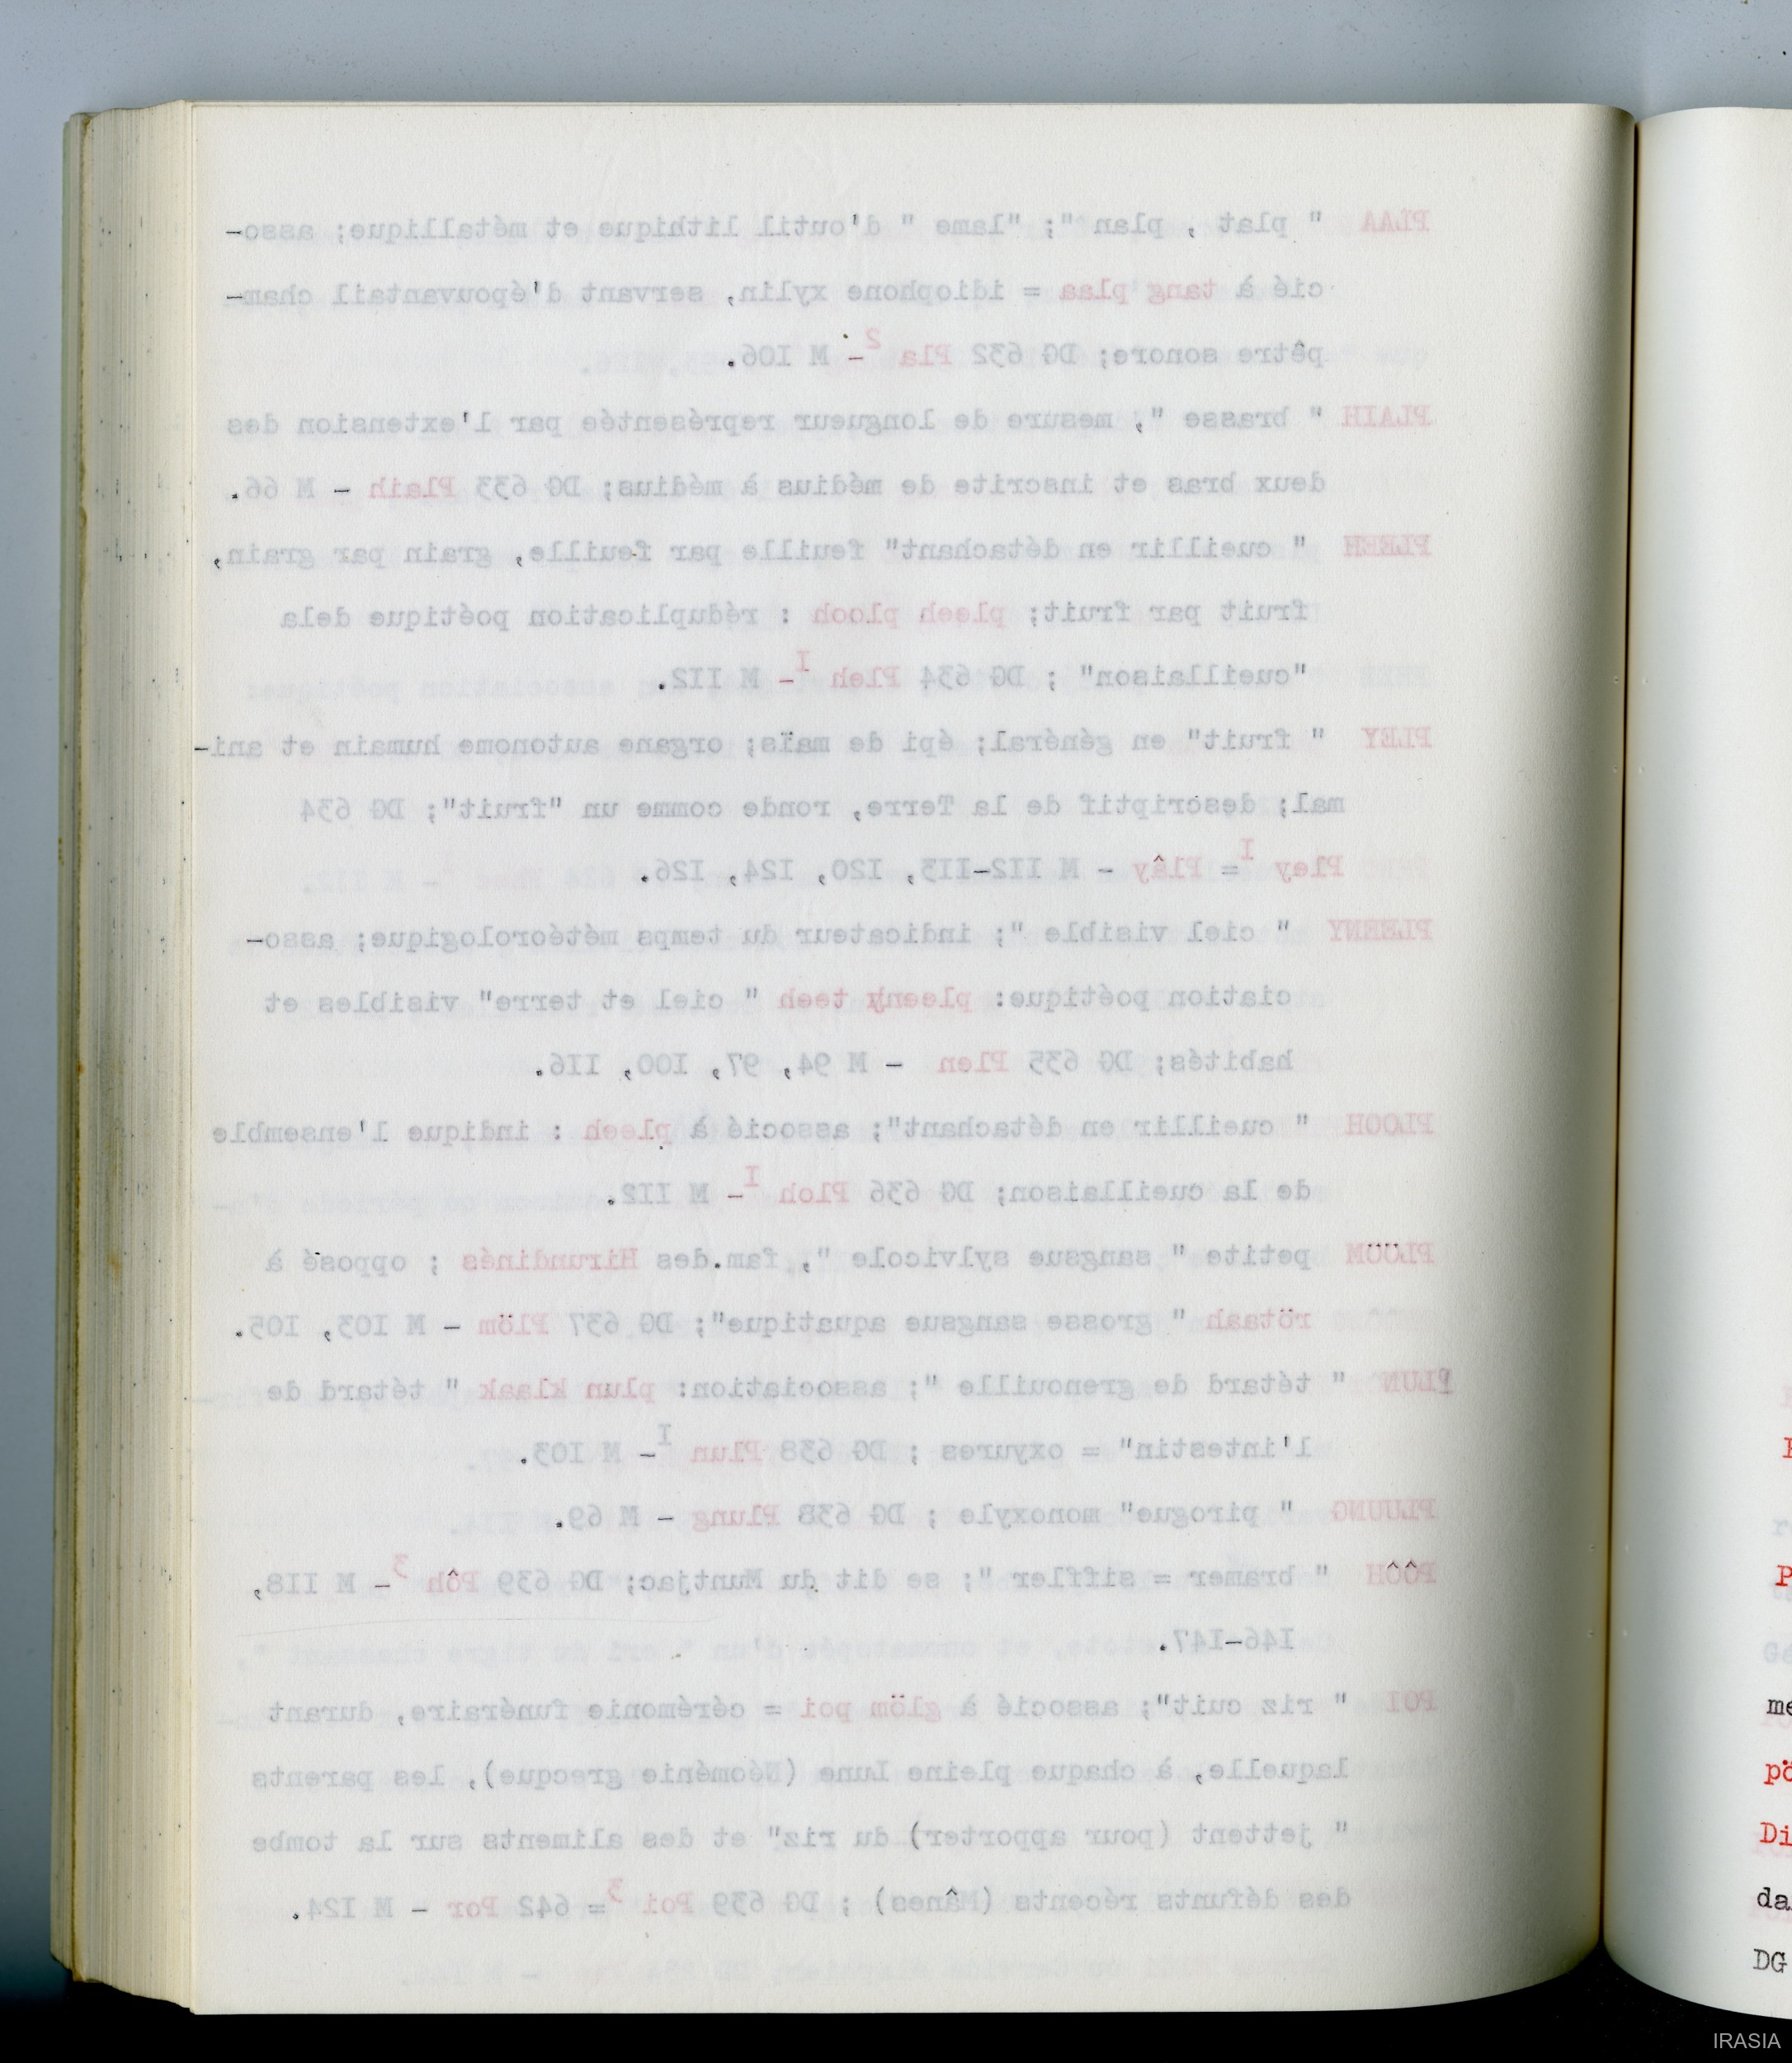 PLAA " plat , plan "; "lame " d'outil lithique et métallique; asso-
cié à tang plaa = idiophone xylin, servant d'épouvantail cham-
pêtre sonore; DG 632 Pla 2- M I06.
PLAIH " brasse ", mesure de longueur représentée par l'extension des
deux bras et inscrite de médius à médius; DG 633 Plaih - M 66.
PLEEH " cueillir en détachant" feuille par feuille, grain par grain,
fruit par fruit; pleeh plooh : réduplication poétique dela
"cueillaison" ; DG 634 Pleh I- M II2.
PLEY " fruit" en général; épi de maïs; organe autonome humain et ani-
mal; descriptif de la Terre, ronde comme un "fruit"; DG 634
Pley I= Plây - M II2-II3, I20, I24, I26.
PLEENY " ciel visible "; indicateur du temps météorologique; asso-
ciation poétique: pleeny teeh " ciel et terre" visibles et
habités; DG 635 Plen - M 94, 97, I00, II6.
PLOOH " cueillir en détachant"; associé à pleeh : indique l'ensemble
de la cueillaison; DG 636 Ploh I- M II2.
PLÖÖM petite " sangsue sylvicole ", fam.des Hirundinés ; opposé à
rötaah " grosse sangsue aquatique"; DG 637 Plöm - M I03, I05.
PLUN " tétard de grenouille "; association: plun klaak " tétard de
l'intestin" = oxyures ; DG 638 Plun I- M I03.
PLUUNG " pirogue" monoxyle ; DG 638 Plung - M 69.
PÔÔH " bramer = siffler "; se dit du Muntjac; DG 639 Pôh 3- M II8,
I46-I47.
POI " riz cuit"; associé à glöm poi = cérémonie funéraire, durant
laquelle, à chaque pleine Lune (Néoménie grecque), les parents
" jettent (pour apporter) du riz" et des aliments sur la tombe
des défunts récents (Mânes) ; DG 639 Poi 3= 642 Por - M I24.
me
pö
Di
da
DG
IRASIA